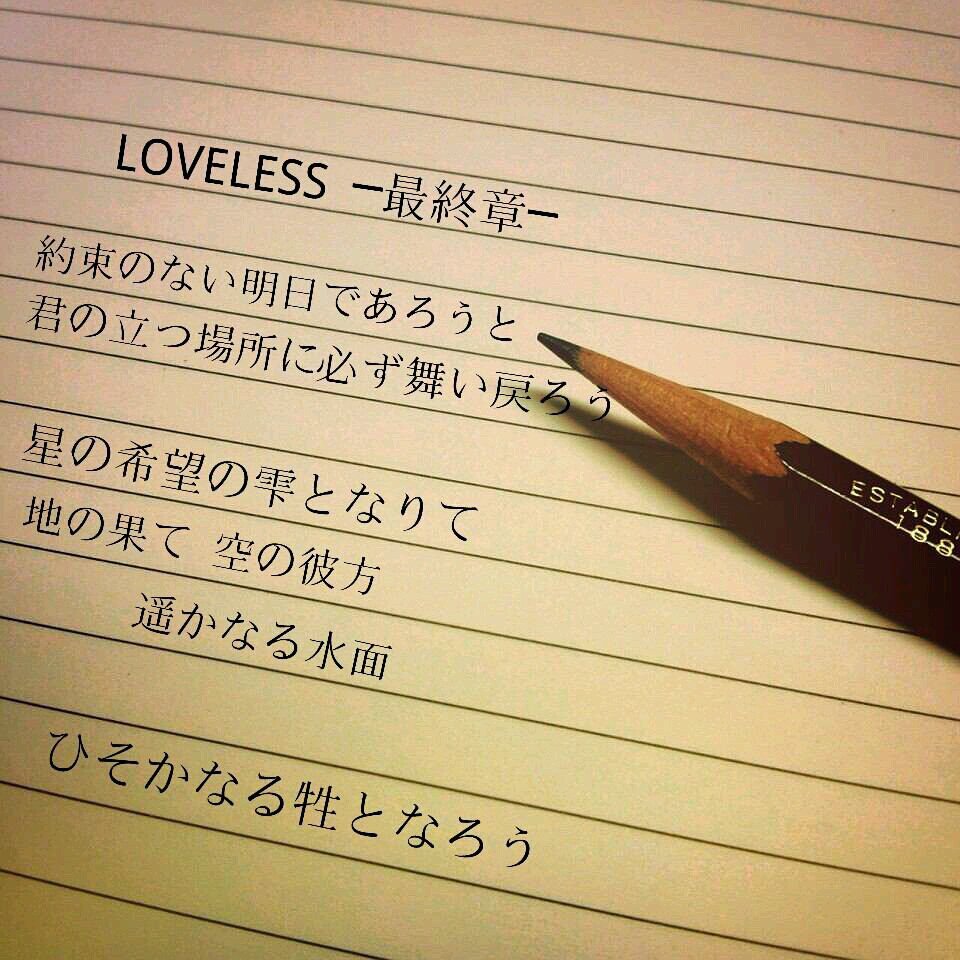 LOVELESS ー最終章ー
約束のない明日であろうと
君の立つ場所に必ず舞い戻ろう
星の希望の雫となりて
地の果て 空の彼方
遥かなる水面
ひそかなる牲となろう
188